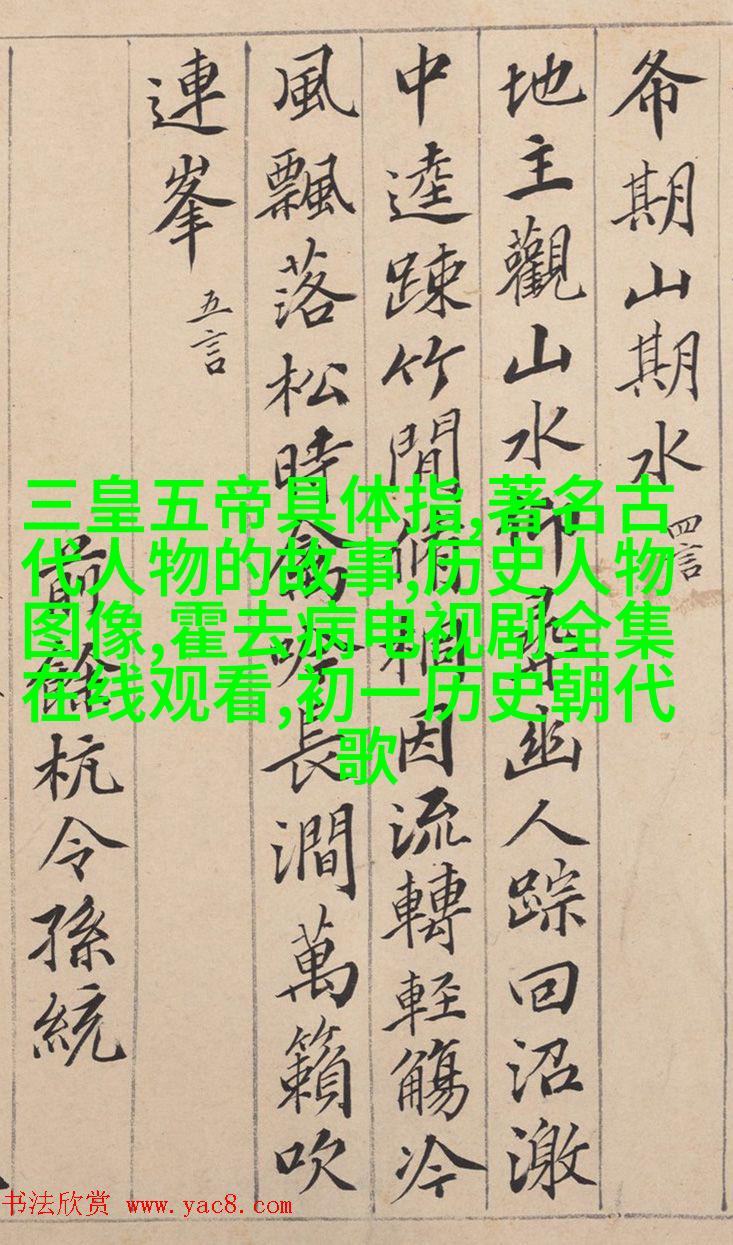 希期山期水 四言
地主觀山水仰尋幽人踪回沼激
中逵踈竹間脩桐因流轉輕觴冷
風飄落松時禽吟長澗萬籟吹
連峯 五言
前餘杭令孫統
三皇五帝具体指,著名古
代人物的故事,历史人物
图像,霍去病电视剧全集
在线观看,初一历史朝代
歌
书法欣赏 www.yac8.com